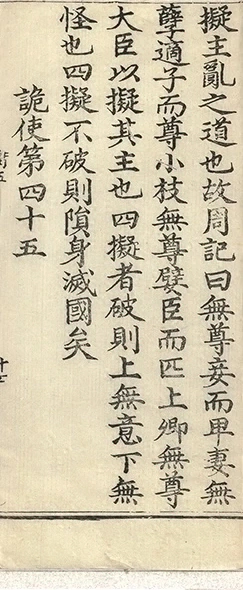 擬主亂之道也故周記曰無尊妾而甲妻無
孽適子而尊小枝無尊嬖臣而匹上卿無尊
大臣以擬其主也四擬者破則上無意下無
怪也四擬不破則隕身滅國矣
詭使第四十五